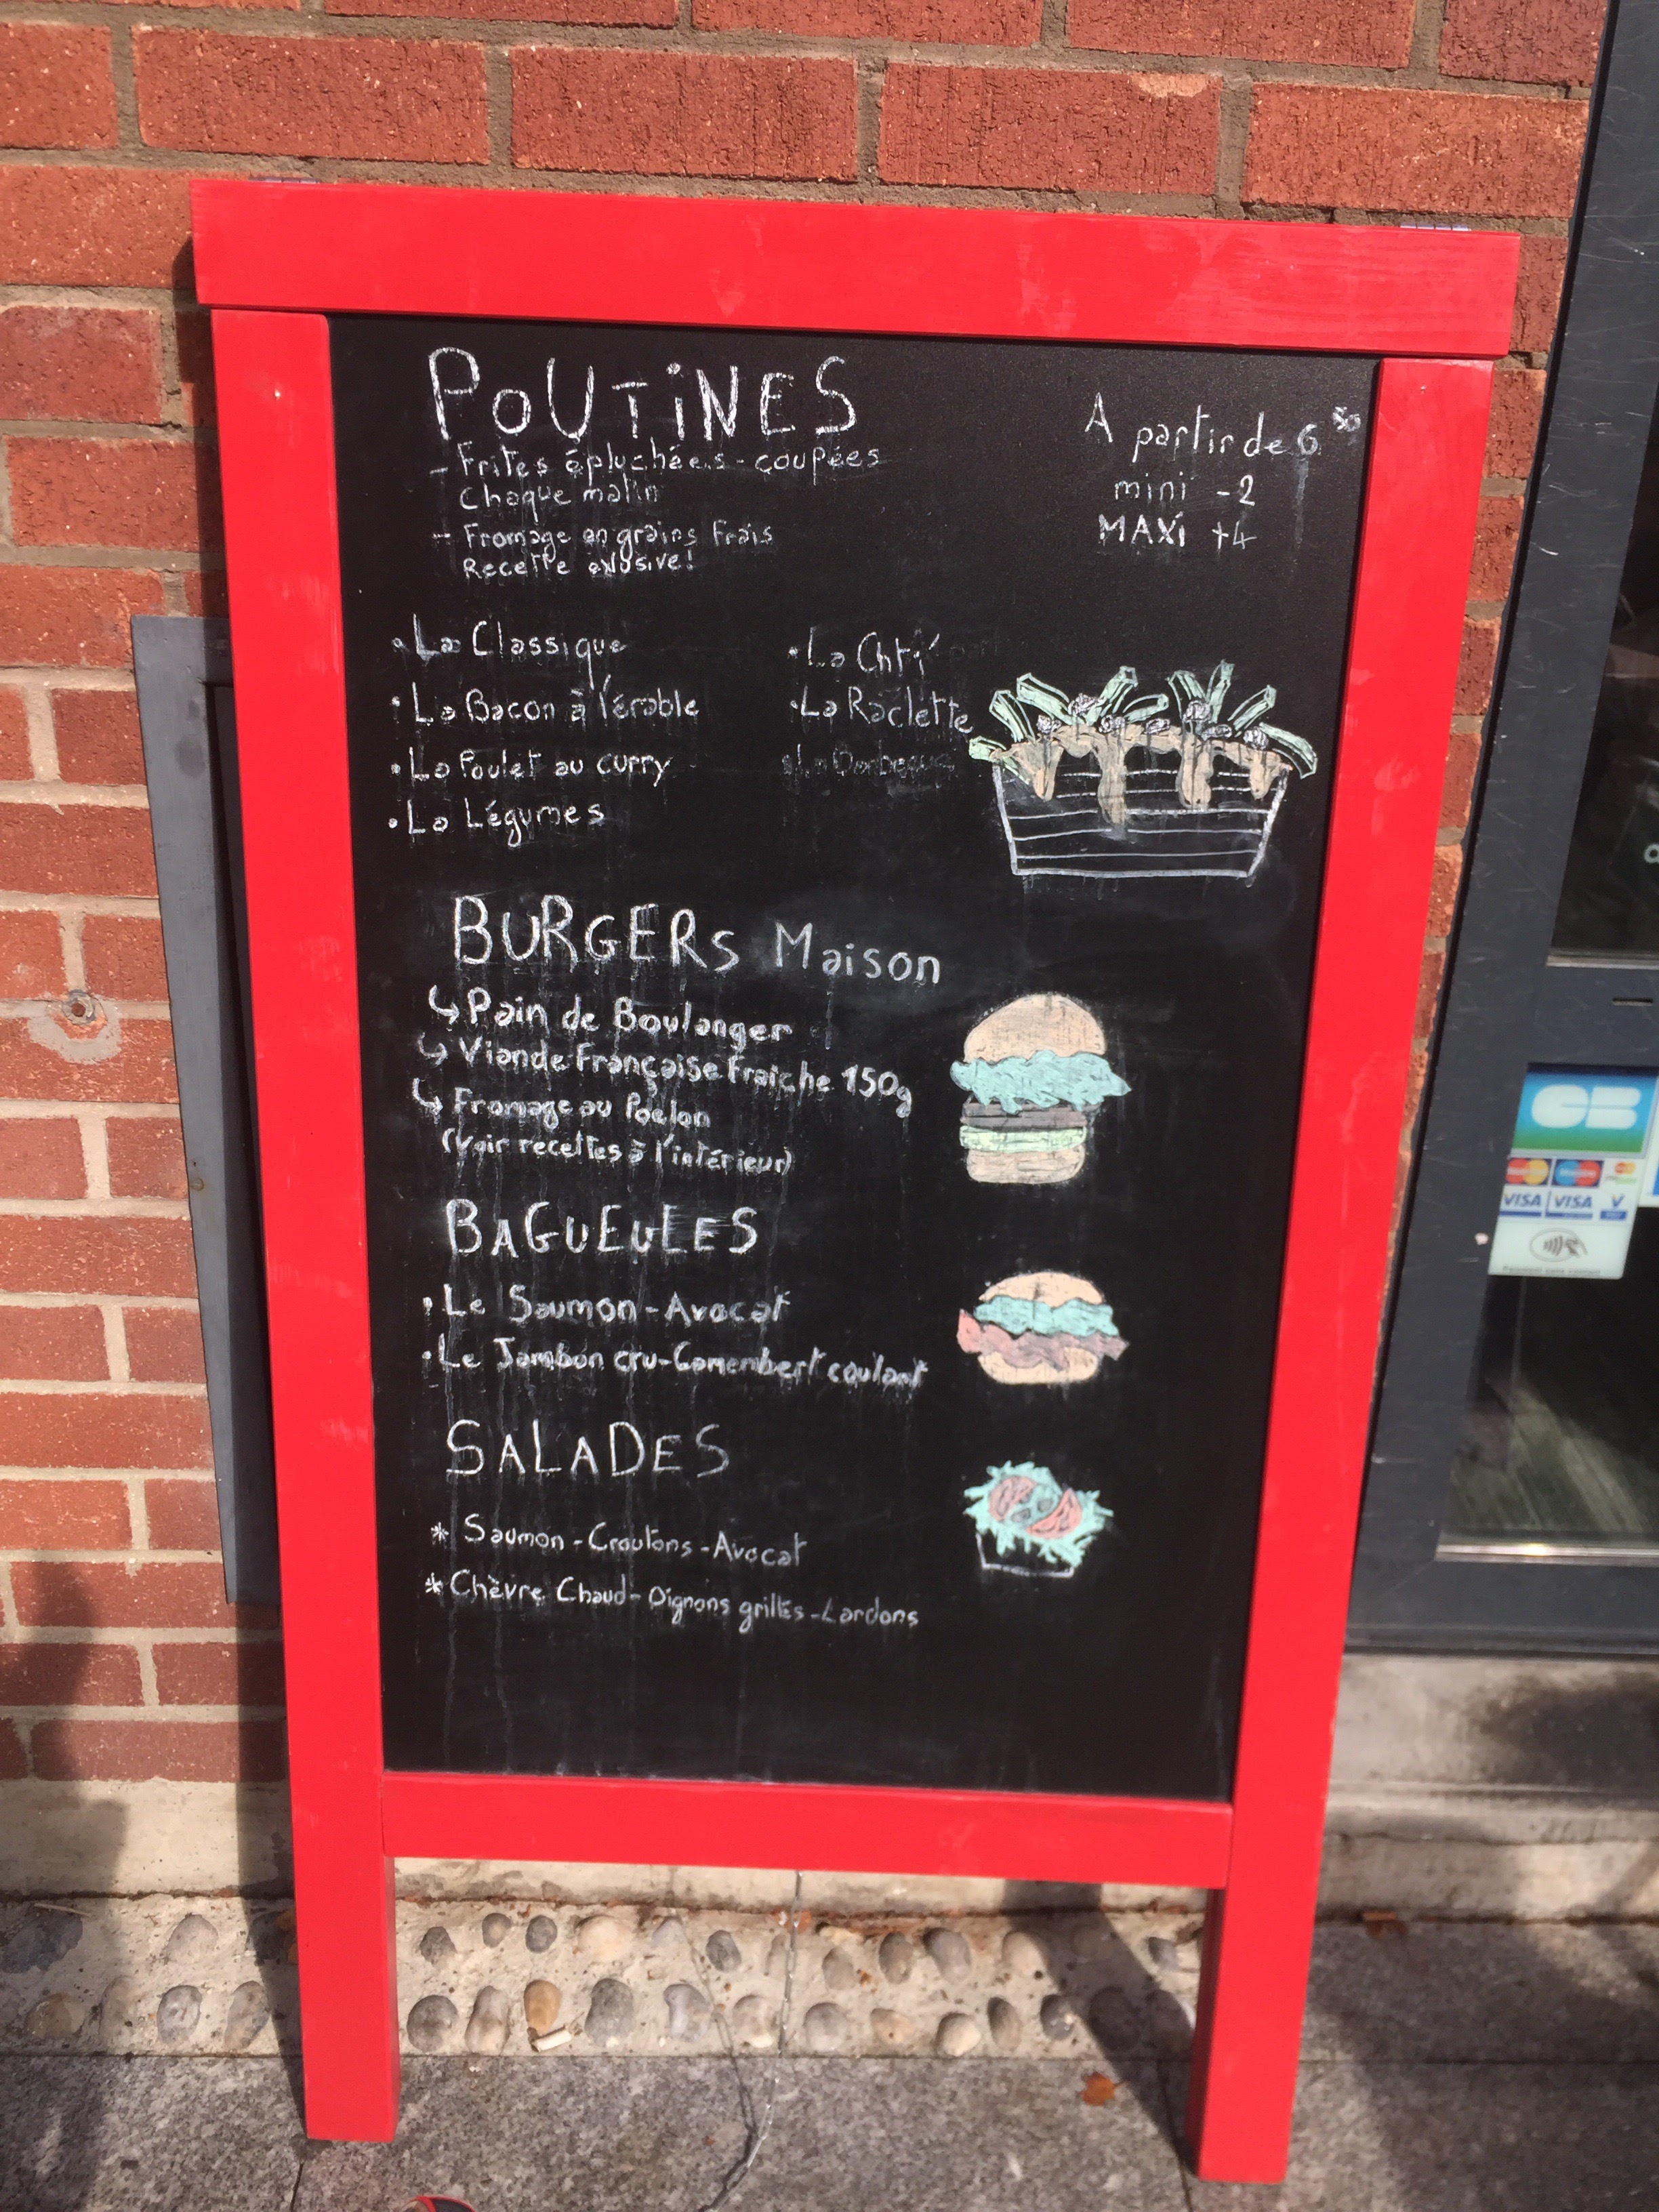 POUTiNES
A partir de 6.50
- Frites épluchées - coupées
Chaque matin
mini -2
- Fromage en grains Frais
MAXi +4
Recette exlusive!
• La Classique
• La Ch'ti
• La Bacon à l'érable
• La Raclette
• La Poulet au curry
• La Barbecue
• La Légumes
BURGERS Maison
↳ Pain de Boulanger
↳ Viande Française Fraiche 150g
↳ Fromage au Poelon
(Voir recettes à l'intérieur)
BAGUEULES
• Le Saumon - Avocat
• Le Jambon cru - Camembert coulant
SALADES
* Saumon - Croutons - Avocat
* Chèvre Chaud - Oignons grillés - Lardons
CB
VISA VISA V